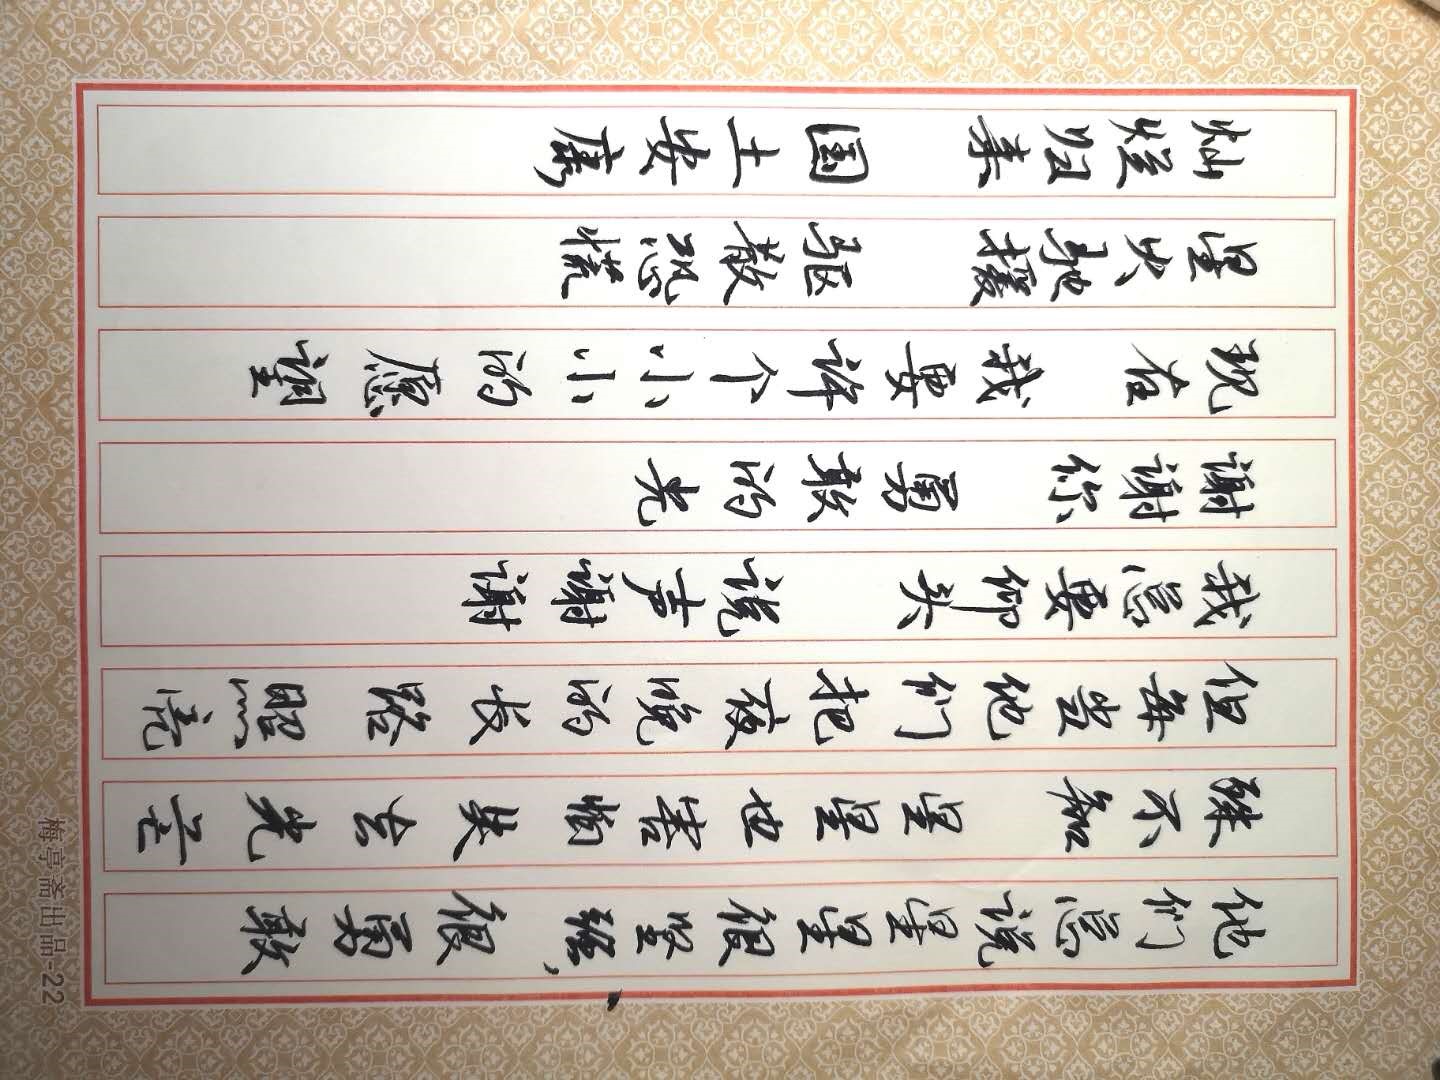 他们总说星星很坚强、很勇敢
殊不知 星星也害怕失去光芒
但每当他们把夜晚的长路照亮
我总要仰头 说声谢谢
谢谢你 勇敢的光
现在 我要许个小小的愿望
星火驰援 驱散恐慌
灿烂归来 国土安康
梅亭斋出品-22